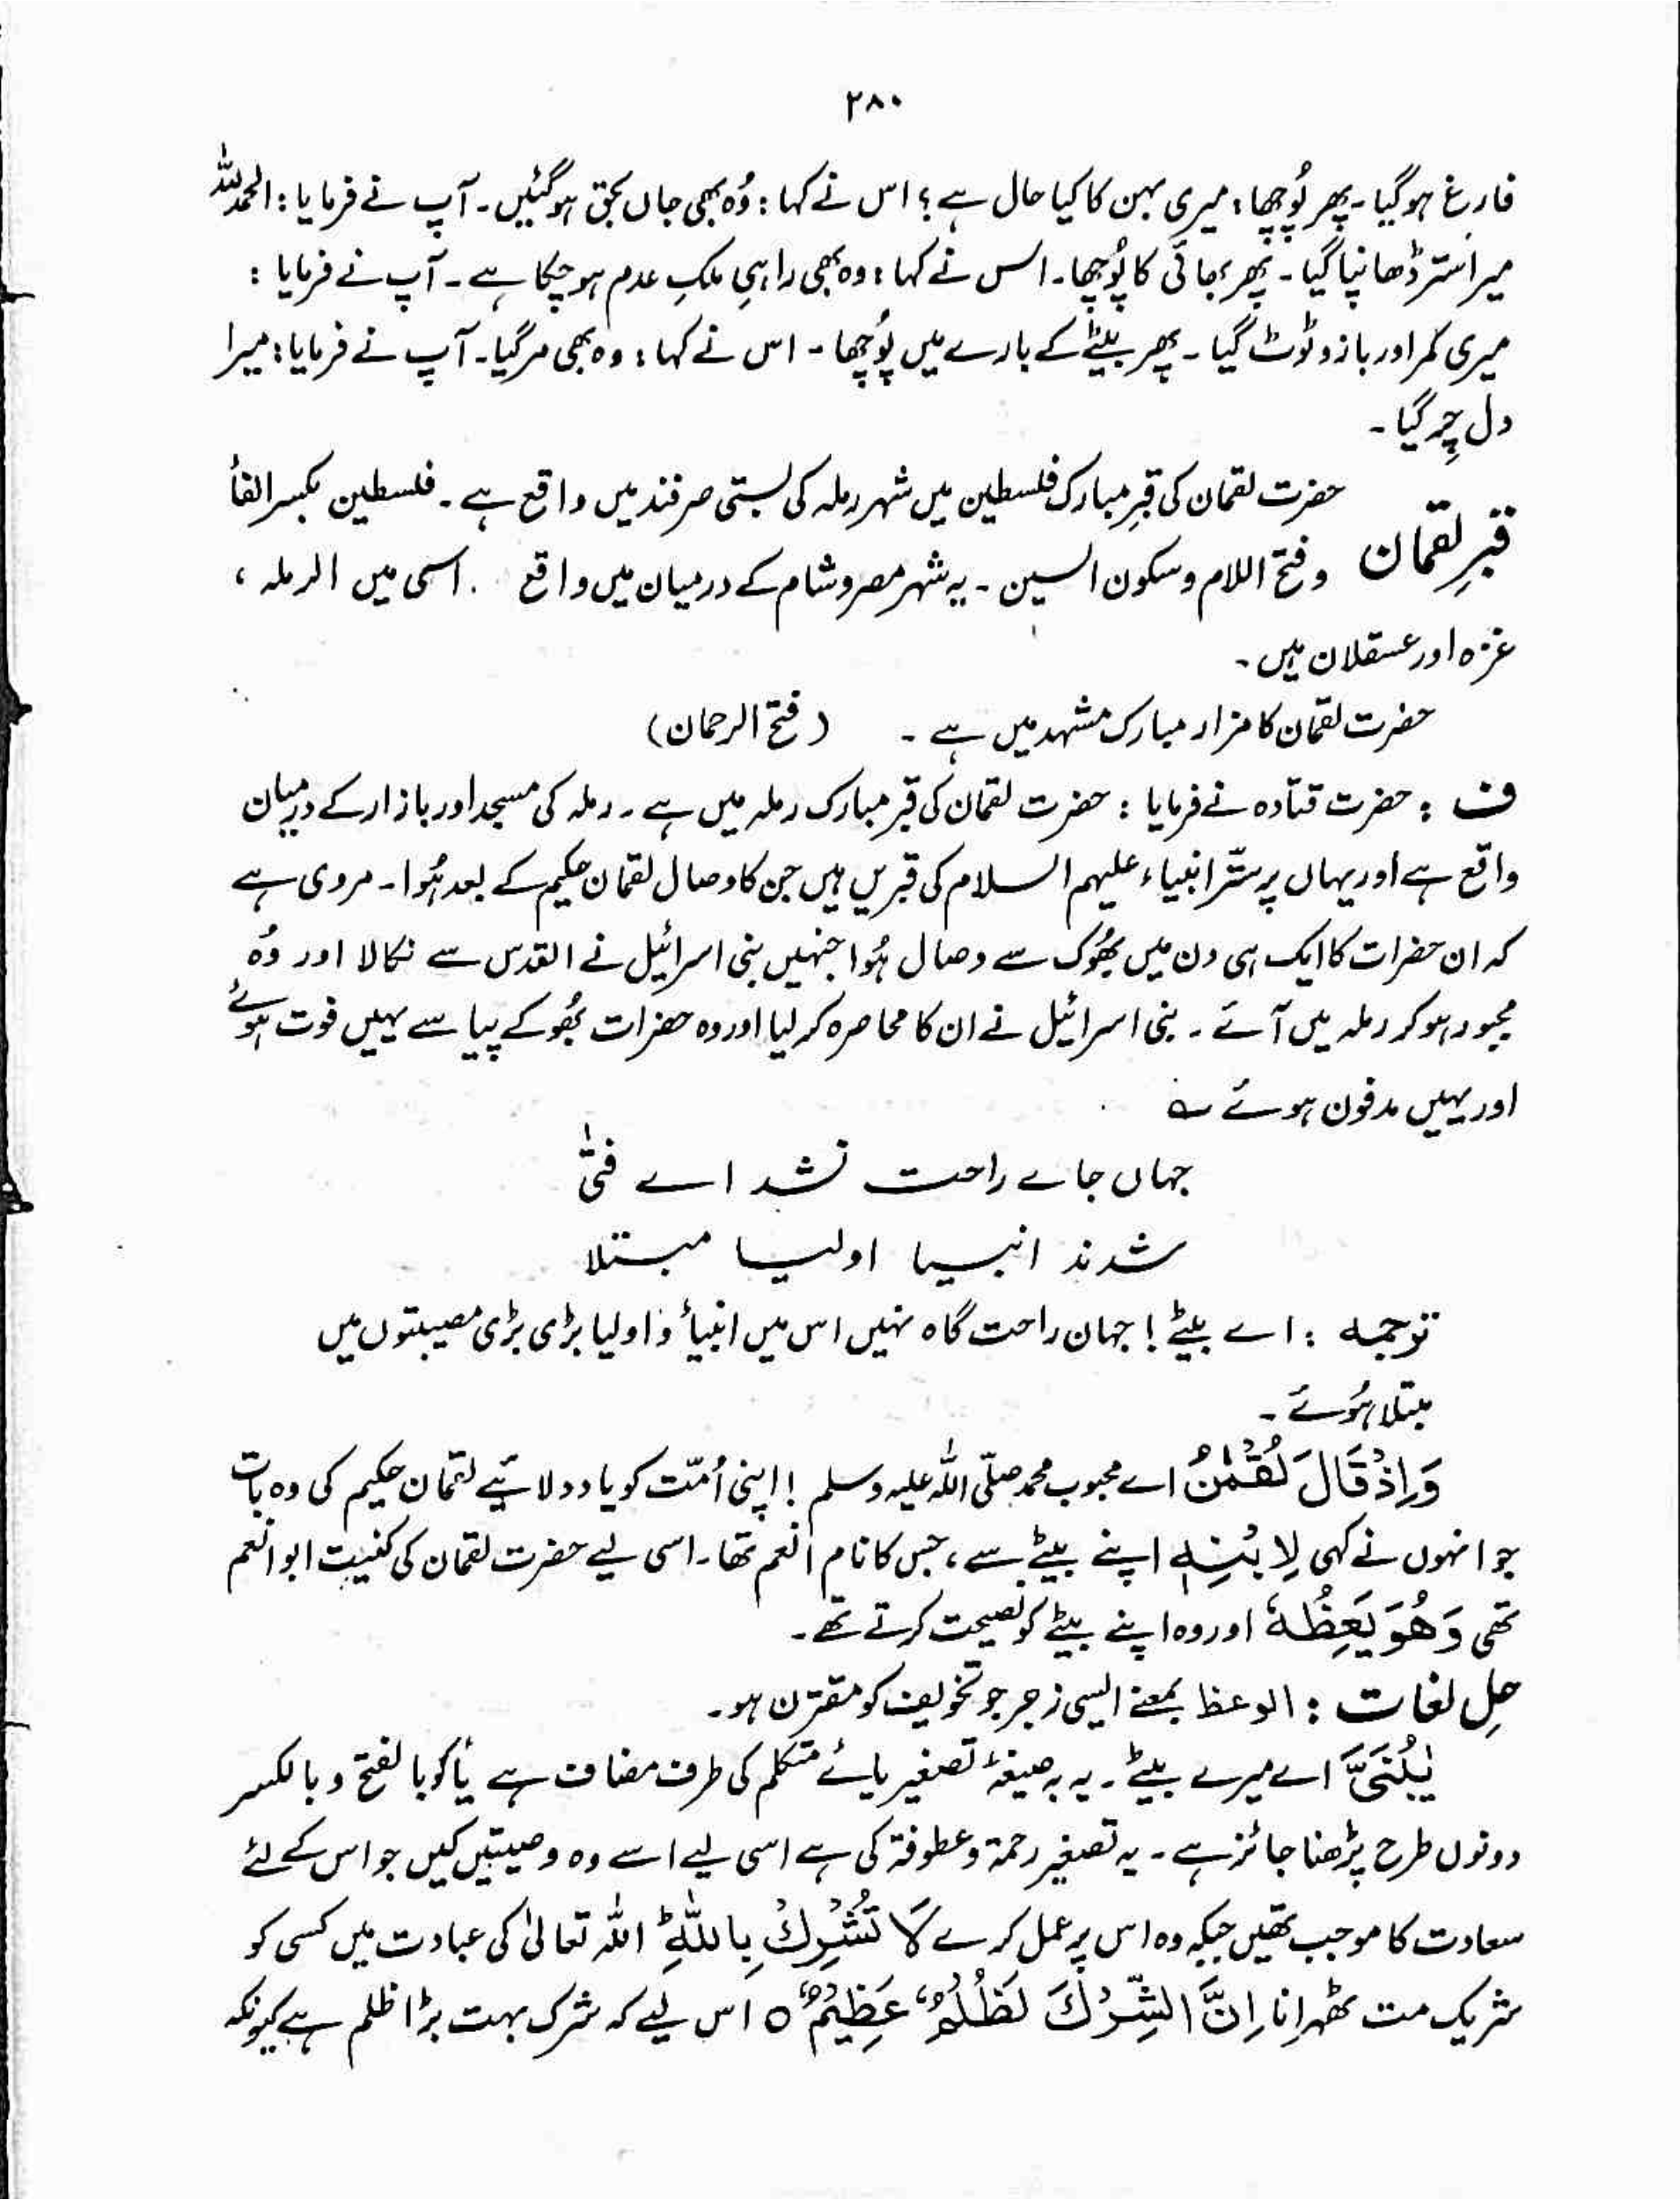 ۲۸۰
فارغ ہوگیا۔ پھر پُوچھا: میری بہن کا کیا حال ہے؟ اس نے کہا: وُہ بھی جاں بحق ہوگئیں۔ آپ نے فرمایا: الحمدللہ
میرا ستر ڈھانپا گیا۔ پھر بھائی کا پُوچھا۔ اس نے کہا: وہ بھی راہیِ ملکِ عدم ہوچکا ہے۔ آپ نے فرمایا:
میری کمر اور بازو ٹوٹ گیا۔ پھر بیٹے کے بارے میں پُوچھا۔ اس نے کہا: وہ بھی مرگیا۔ آپ نے فرمایا: میرا
دل چِر گیا۔
حضرت لقمان کی قبرِ مبارک فلسطین میں شہر رملہ کی بستی صرفند میں واقع ہے۔ فلسطین بکسر الفأ
قبرِ لقمان وفتح اللام وسکون السین۔ یہ شہر مصر و شام کے درمیان میں واقع . اسی میں الرملہ،
غزہ اور عسقلان ہیں۔
حضرت لقمان کا مزار مبارک مشہد میں ہے۔ (فتح الرحمان)
ف: حضرت قتادہ نے فرمایا: حضرت لقمان کی قبر مبارک رملہ میں ہے۔ رملہ کی مسجد اور بازار کے درمیان
واقع ہے اور یہاں پر ستّر انبیاء علیہم السلام کی قبریں ہیں جن کا وصال لقمان حکیم کے بعد ہُوا۔ مروی ہے
کہ ان حضرات کا ایک ہی دن میں بھُوک سے وصال ہُوا جنہیں بنی اسرائیل نے القدس سے نکالا اور وُہ
مجبور ہوکر رملہ میں آئے۔ بنی اسرائیل نے ان کا محاصرہ کرلیا اور وہ حضرات بھُوکے پیاسے یہیں فوت ہوئے
اور یہیں مدفون ہوئے ؎
جہاں جاے راحت نشد اے فتیٰ
شدند انبیا اولیا مبتلا
ترجمہ: اے بیٹے! جہان راحت گاہ نہیں اس میں انبیأ و اولیا بڑی بڑی مصیبتوں میں
مبتلا ہُوئے۔
وَاِذْ قَالَ لُقْمٰنُ اے محبوب محمد صلّی اللہ علیہ وسلم! اپنی اُمّت کو یاد دلائیے لقمان حکیم کی وہ بات
جو انہوں نے کہی لِابْنِہٖ اپنے بیٹے سے، جس کا نام انعم تھا۔ اسی لیے حضرت لقمان کی کنیت ابو انعم
تھی وَھُوَ یَعِظُہٗ اور وہ اپنے بیٹے کو نصیحت کرتے تھے۔
حلِ لغات: الوعظ بمعنے ایسی زجر جو تخویف کو مقترن ہو۔
یٰبُنَیَّ اے میرے بیٹے۔ یہ بہ صیغۂ تصغیر یائے متکلم کی طرف مضاف ہے یأ کو بالفتح و بالکسر
دونوں طرح پڑھنا جائز ہے۔ یہ تصغیر رحمۃ و عطوفۃ کی ہے اسی لیے اسے وہ وصیتیں کیں جو اس کے لئے
سعادت کا موجب تھیں جبکہ وہ اس پر عمل کرے لَا تُشْرِکْ بِاللّٰہِ ؕ اللہ تعالیٰ کی عبادت میں کسی کو
شریک مت ٹھہرانا اِنَّ الشِّرْکَ لَظُلْمٌ عَظِیْمٌ ۝ اس لیے کہ شرک بہت بڑا ظلم ہے کیونکہ